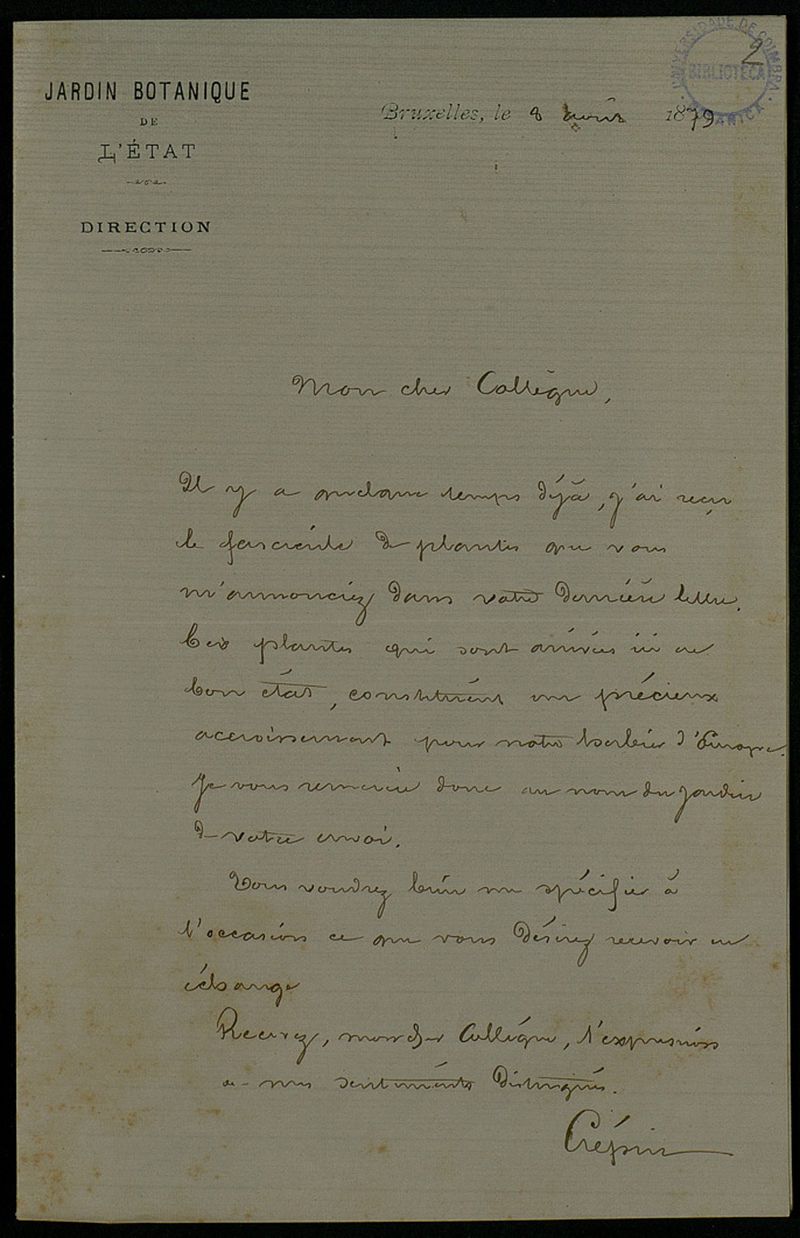 UNIVERSIDADE DE COIMBRA
BIBLIOTECA
BOTANICA
2
JARDIN BOTANIQUE
DE
L'ÉTAT
DIRECTION
Bruxelles, le 8 avril 1879
Mon cher Collègue,
Il y a quelque temps déjà, j'ai reçu
le fascicule de plantes que vous
m'annonciez dans votre dernière lettre.
Ces plantes qui sont arrivées ici en
bon état, constituent un précieux
accroissement pour notre herbier d'Europe.
Je vous remercie donc au nom du Jardin
de votre envoi.
Vous voudrez bien me spécifier à
l'occasion ce que vous désirez recevoir en
échange
Recevez, mon cher Collègue, l'expression
de mes sentiments distingués.
Crépin